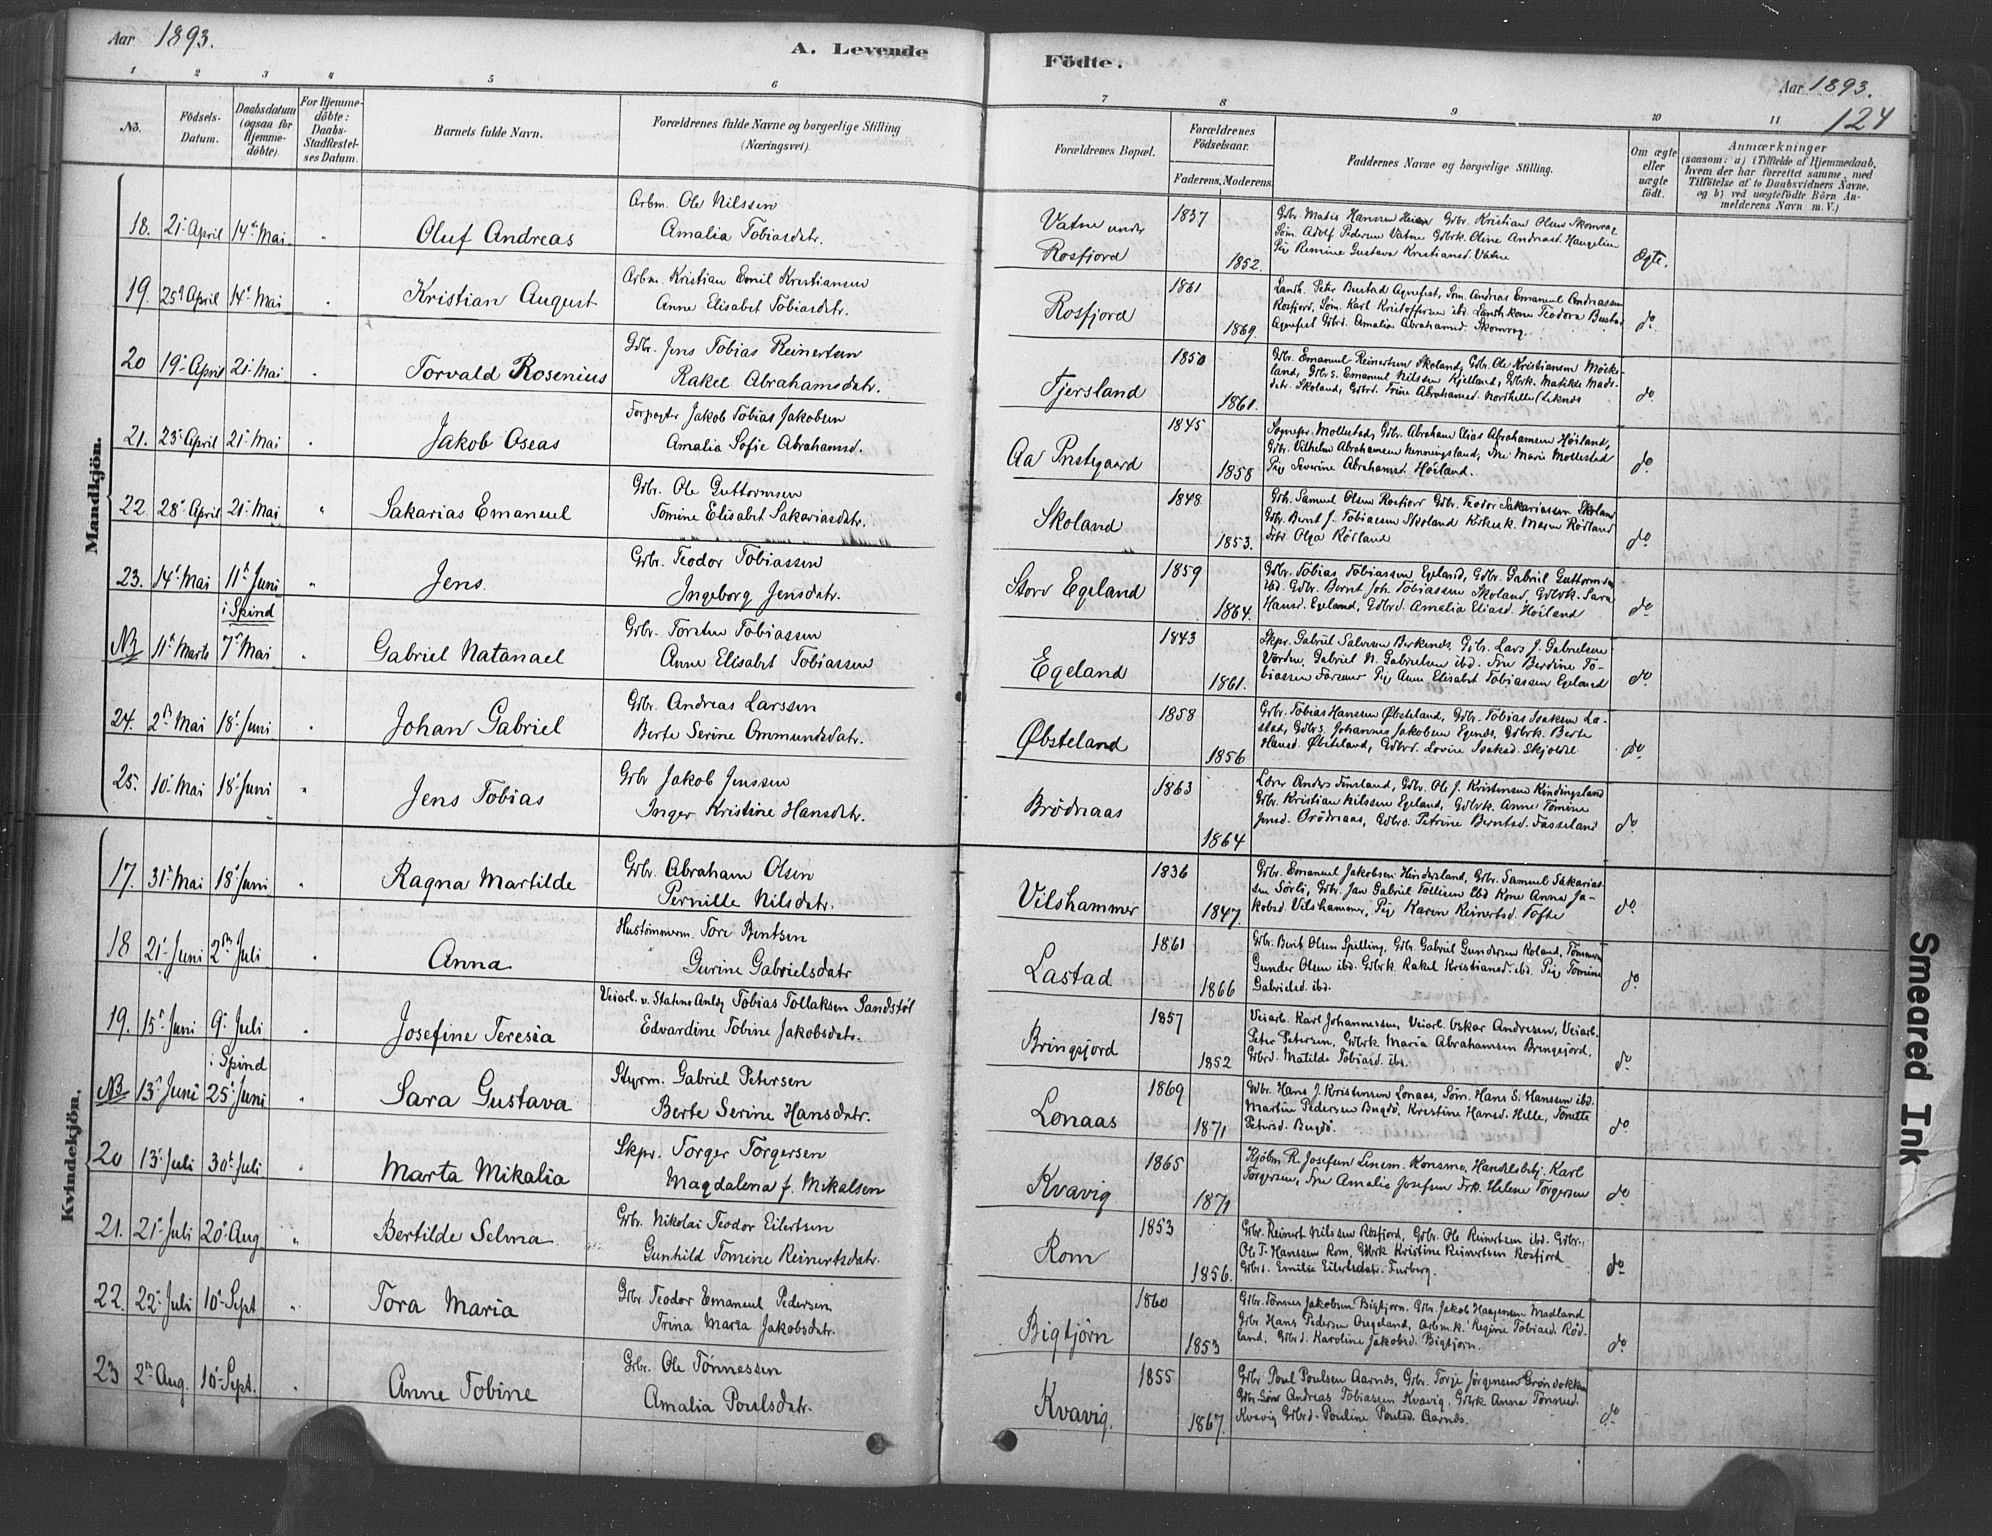 Aar 1893.
A. Levende
Födte.
Aar 1893.
124
1 2 3 4 5 6 7 8 9 10 11
No.
Födsels-
Datum.
Daabsdatum
(ogsaa for
Hjemme-
döbte).
For Hjemme-
döbte:
Daabs-
Stadfæstel-
ses Datum.
Barnets fulde Navn.
Forældrenes fulde Navne og borgerlige Stilling
(Næringsvei).
Forældrenes Bopæl.
Forældrenes
Födselsaar.
Faderens. Moderens.
Faddernes Navne og borgerlige Stilling.
Om ægte
eller
uægte
födt.
Anmærkninger
(saasom: a) i Tilfælde af Hjemmedaab,
hvem der har forrettet samme, med
Tilföielse af to Daabsvidners Navne.
og b) ved uægtefödte Börn An-
melderens Navn m. V.)
Mandkjön.
18. 21. April 14de Mai Oluf Andreas
Arbm. Ole Nilssen
Amalia Tobiasdatr.
Vatne under
Rosfjord
1837
1852.
Gbr. Matis Hanssen Heien Gbr. Kristian Olsen Skomrag
Söm. Adolf Pedersen Vatne Gdbrk. Oline Andreasd. Haugelien
Pig Remine Gustava Kristiansd. Vatne
Ægte.
19. 25de April 14de Mai Kristian August
Arbm. Kristian Emil Kristiansen
Anne Elisabet Tobiasdatr.
Rosfjord
1861
1869.
Landh. Peter Bustad Agnefest, Söm. Andreas Emanuel Andreassen
Rosfjord, Söm. Karl Kristoffersen ibd. Landh.kone Teodora Bustad
Agnefest Gdbrd. Amalia Abrahamsd. Skomrag.
do.
20 19. April 21. Mai Torvald Rosenius
Gdbr. Jens Tobias Reinertsen
Rakel Abrahamsdatr.
Tjersland
1850
1861.
Gdbr. Emanuel Reinertsen Skoland, Gdbr. Ole Kristiansen Möske-
land, Gdbr.s. Emanuel Nilssen Kjelland, Gdbrk. Matilde Mads-
datr. Skoland, Gdbrd. Trine Abrahamsd. Nordhelle (Leknes
do
21. 23. April 21. Mai Jakob Oseas
Forpagter Jakob Tobias Jakobsen
Amalia Sofie Abrahamsd.
Aa Prestegaard
1845
1858
Sognepr. Mollestad, Gdbr. Abraham Elias Abrahamsen Höiland,
Gdbr. Vilhelm Abrahamsen Venningsland, Fru Marie Mollestad
Pig Severine Abrahamsd. Höiland.
do
22 28. April 21. Mai Sakarias Emanuel
Gdbr. Ole Guttormsen
Tomine Elisabet Sakariasdatr.
Skoland
1848
1853.
Gdb. Samuel Olsen Rosfjord Gdbr. Teodor Sakariassen Skoland
Gdbr. Bernt J. Tobiassen Skoland Kirkesk. Maren Rödland
Olga Rödland
do
23. 14de Mai 11te Juni Jens.
Gbr. Teodor Tobiassen
Ingeborg Jensdatr.
Store Egeland
1859
1864.
Gdbr. Tobias Tobiassen Egeland, Gdbr. Gabriel Guttormsen
ibd. Gdbr. Bernt Joh. Tobiassen Skoland, Gdbrk. Sara
Hansd. Egeland, Gdbrd. Amalia Eliasd. Höiland
do
i Spind
NB 11te Marts 7de Mai Gabriel Natanael
Gbr. Torsten Tobiassen
Anne Elisabet Tobiassen
Egeland
1843
1861.
Skpr. Gabriel Salvesen Birkenes, Gbr. Lars J. Gabrielsen
Vorden, Gabriel N. Gabrielsen ibd. Fru Berdine To-
biassen Farsund Pig Anne Elisabet Tobiassen Egeland
do.
24. 2den Mai 18. Juni Johan Gabriel
Gbr. Andreas Larssen
Berte Serine Ommundsdatr.
Øbsteland
1858
1856
Gbr. Tobias Hanssen Øbsteland, Gdbr. Tobias Isaksen La-
stad, Gdbrs. Johannes Jakobsen Egenes, Gdbrk. Berte
Hansd. Øbsteland, Gdbrd. Lovise Isaksd. Skjoldal
do
25. 10. Mai 18. Juni Jens Tobias
Gbr Jakob Jenssen
Inger Kristine Hansdatr.
Brödnaas
1863
1864
Lærer Anders Finsland, Gdbr. Ole J. Kristensen Kindingsland
Gdbr. Kristian Nilssen Egeland, Gdbrk. Anne Tomine
Jensd. Brödnaas, Gdbrd. Petrine Berntsd. Fasseland
do.
Kvindekjön.
17. 31te Mai 18. Juni Ragna Martilde
Gbr. Abraham Olsen
Pernille Nilsdatr.
Vilshammer
1836
1847.
Gbr. Emanuel Jakobsen Hindersland, Gdbr. Samuel Sakarias-
sen Sörli, Gdbr. Jan Gabriel Tollisen ibd Kone Anna Ja-
kobsd. Vilshammer, Pig Karen Reinertsd. Tofte
do
18 21. Juni 2den Juli Anna
Hustömmerm. Tore Bentsen
Gurine Gabrielsdatr
Lastad
1861
1866
Gbr. Berit Olsen Spilling, Gdbr Gabriel Gundersen Roland, Tömmerm
Gunder Olsen ibd. Gdbrk Rakel Kristiansd. ibd. Pig Tomine
Gabrielsd. ibd.
do
19. 15de Juni 9. Juli Josefine Teresia
Veiarb. v. Statne Anlæg Tobias Tollaksen Sandstöl
Edvardine Tobine Jakobsdatr.
Bringsjord
1857
1852
Veiarb. Karl Johannessen, Veiarb. Oskar Andresen, Veiarb.
Peter Petersen, Gdbrk Maria Abrahamsen Bringsjord,
Gdbrd. Matilde Tobiasd. ibd.
do
i Spind
NB 13de Juni 25. Juni Sara Gustava
Styrm. Gabriel Petersen
Berte Serine Hansdatr.
Lonaas
1869
1871
Gdbr. Hans J. Kristensen Lonaas, Söm. Hans S. Hanssen ibd.
Martin Pedersen Bugdö, Kristine Hansd. Hille, Tonette
Petersd. Bugdö.
do.
20 13. Juli 30te Juli Marta Mikalia
Skpr. Torger Torgersen
Magdalena f. Mikalsen
Kvavig
1865
1871
Kjöbm R. Josefsen Konsmo, Handelsbtj. Karl
Torgersen, Fru Amalia Josefsen Frk. Helene Torgersen
do
21. 21. Juli 20. Aug. Bertilde Selma
Gbr. Nikolai Teodor Eilertsen
Gunhild Tomine Reinertsdatr.
Rom
1853
1856.
Gbr. Reinert Nilssen Rosfjord, Gdbr. Ole Reinertsen ibd. Gdbr.
Ole T. Hanssen Rom, Gdbrk Kristine Reinertsen Rosfjord
Gdbrd. Emilie Eilertsdatr. Furberg.
do
22. 22. Juli 10. Sept Tora Maria
Gbr. Teodor Emanuel Pedersen
Trina Maria Jakobsdatr.
Bigtjörn
1860
1853
Gbr. Tönnes Jakobsen Bigtjörn. Gdbr. Jakob Haagensen Madland
Gbr Hans Pedersen Augeland, Arbm.k. Regine Tobiasd. Röd-
land, Gdbrd. Karoline Jakobsd. Bigtjörn.
do
23 2den Aug. 10. Sept. Anne Tobine
Gbr. Ole Tönnessen
Amalia Poulsdatr.
Kvavig.
1855
1867.
Gbr Poul Poulsen Aarnes, Gbr. Torje Jörgensen Gröndokken
Gdbr. Sön Andreas Tobiassen Kvavig, Gdbrk Anna Tönnesd.
Kvavig Gdbrd. Pouline Poulsd. Aarnes.
do
Smeared Ink